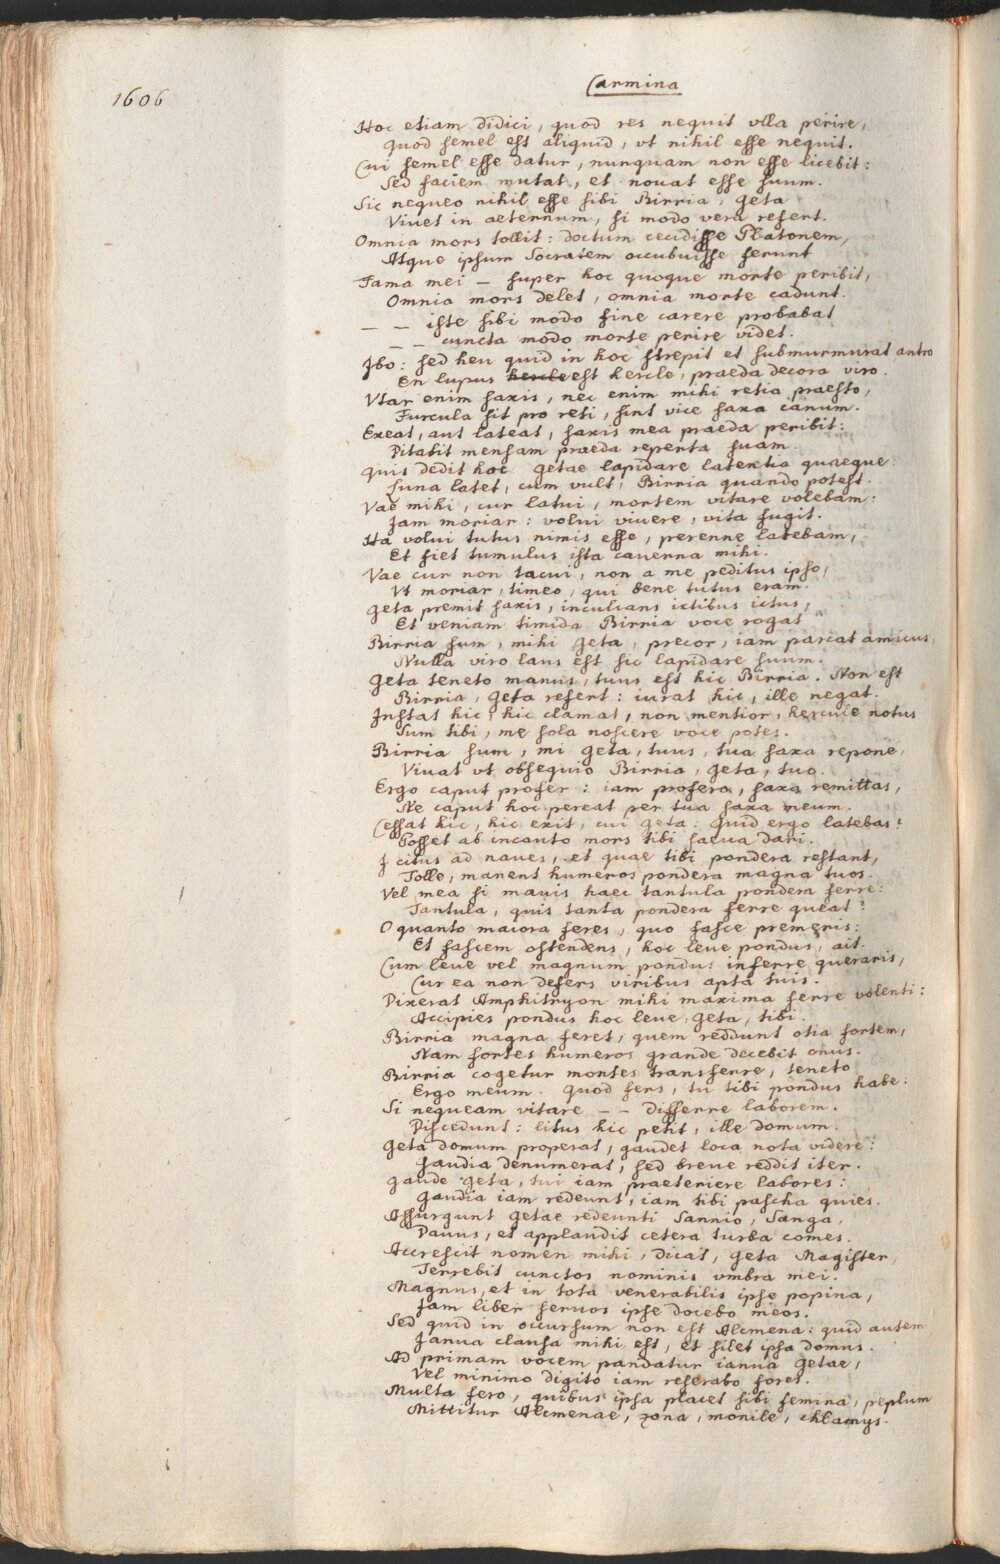 1606
Carmina
Hoc etiam didici, quod res nequit vlla perire,
quod semel est aliquid, vt nihil esse nequit.
Cui semel esse datur, nunquam non esse licebit:
Sed faciem mutat, et nouat esse suum.
Sic nequeo nihil esse sibi Birria, Geta
Viuet in aeternum, si modo vera refert.
Omnia mors tollit: doctum cecidisse Platonem,
Atque ipsum Socratem occubuisse ferunt
Fama mei — super hoc quoque morte peribit,
Omnia mors delet, omnia morte cadunt.
— — iste sibi modo fine carere probabat
— — cuncta modo morte perire videt.
Ibo: sed heu quid in hoc strepit et submurmurat antro
En lupus hercle est hercle, praeda decora viro.
Vtar enim saxis, nec enim mihi retia praesto,
Furcula sit pro reti, sint vice saxa canum.
Exeat, aut lateat, saxis mea praeda peribit:
Ditabit mensam praeda reperta suam.
quis dedit hoc Getae lapidare latentia quaeque:
Luna latet, cum vult, Birria quando potest.
Vae mihi, cur latui, mortem vitare volebam:
Jam moriar: volui viuere, vita fugit.
Ita volui tutus nimis esse, perenne latebam,
Et fiet tumulus ista cauerna mihi.
Vae cur non tacui, non a me peditus ipso,
Vt moriar, timeo, qui bene tutus eram.
Geta premit saxis, inculians ictibus ictus,
Et veniam timida Birria voce rogat
Birria sum, mihi Geta, precor, iam parcat amicus,
Nulla viro laus est sic lapidare suum.
Geta teneto manus, tuus est hic Birria. Non est
Birria, Geta refert: iurat hic, ille negat.
Instat hic, hic clamat, non mentior, hercule notus
Sum tibi, me sola noscere voce potes.
Birria sum, mi Geta, tuus, tua saxa repone,
Viuat vt obsequio Birria, Geta, tuo.
Ergo caput profer: iam profero, saxa remittas,
Ne caput hoc pereat per tua saxa meum.
Cessat hic, hic exit, cui Geta: Quid ergo latebas?
Posset ab incauto mors tibi saeua dari.
I citus ad naues, et quae tibi pondera restant,
Tolle, manent humeros pondera magna tuos.
Vel mea si mauis haec tantula pondera ferre:
Tantula, quis tanta pondera ferre queat?
O quanto maiora feres, quo fasce premeris:
Et fascem ostendens, hoc leue pondus, ait.
Cum leue vel magnum pondus inferre queraris,
Cur ea non defers viribus apta tuis.
Dixerat Amphitryon mihi maxima ferre volenti:
Accipies pondus hoc leue, Geta, tibi.
Birria magna feret, quem reddunt otia fortem,
Nam fortes humeros grande decebit onus.
Birria cogetur montes transferre, teneto
Ergo meum. Quod fers, tu tibi pondus habe:
Si nequeam vitare — — differre laborem.
Discedunt: litus hic petit, ille domum.
Geta domum properat, gaudet loca nota videre:
Gaudia denumerat, sed breue reddit iter.
Gaude Geta, tui iam praeteriere labores:
Gaudia iam redeunt, iam tibi pascha quies.
Assurgunt Getae redeunti Sannio, Sanga,
Dauus, et applaudit cetera turba comes.
Accrescit nomen mihi, dicat, Geta Magister,
Terrebit cunctos nominis vmbra mei.
Magnus, et in tota venerabilis ipse popina,
Jam liber seruos ipse docebo meos.
Sed quid in occursum non est Alcmena: quid autem
Janua clausa mihi est, et silet ipsa domus.
Ad primam vocem pandatur ianua Getae,
Vel minimo digito iam reserabo fores.
Multa fero, quibus ipsa placet sibi femina, peplum
Mittitur Alcmenae, zona, monile, chlamys.